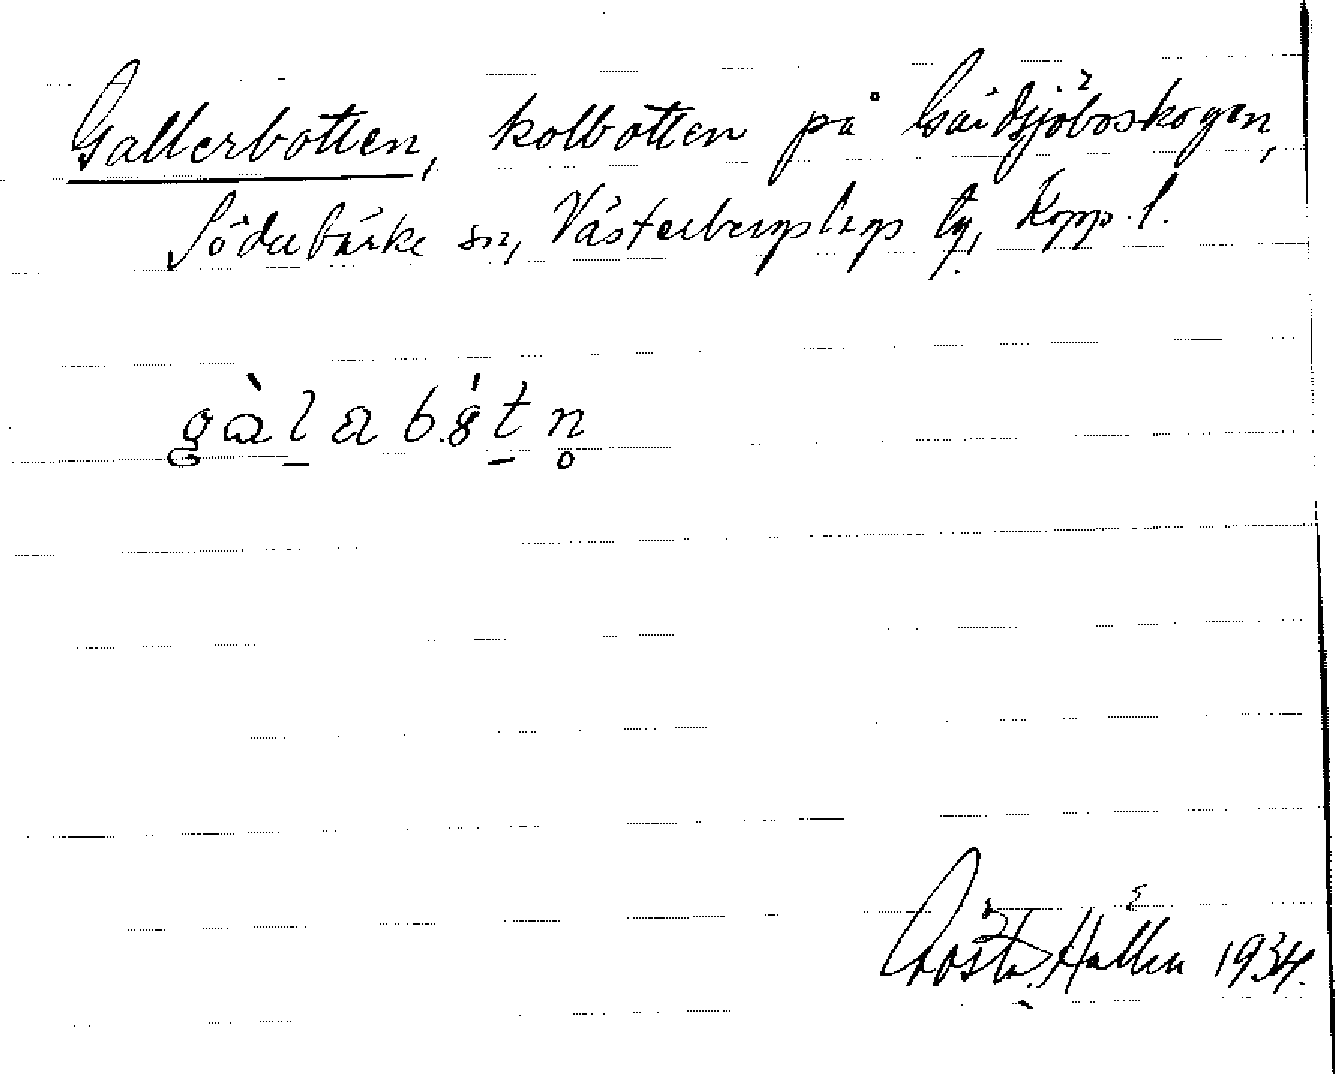 Gallerbotten, kolbotten på Gårdsjöboskogen,
Söderbärke sn, Västerbergslags tg, Kopp. l.
gàlabótn̥
Gösta Hallén 1934.